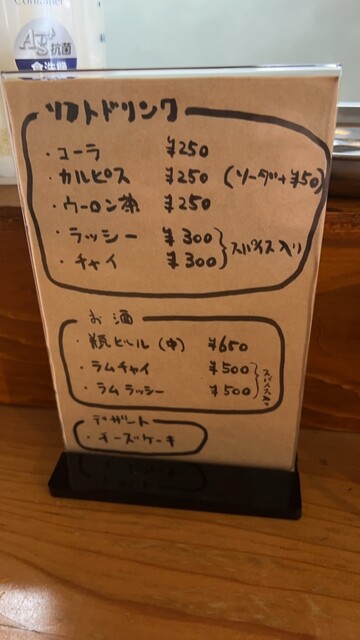 Container
Ag+抗菌
食洗機
ソフトドリンク
・コーラ ¥250
・カルピス ¥250 (ソーダ+¥50)
・ウーロン茶 ¥250
・ラッシー ¥300
・チャイ ¥300
スパイス入り
お酒
・瓶ビール (中) ¥650
・ラムチャイ ¥500
・ラムラッシー ¥500
スパイス入り
デザート
・チーズケーキ